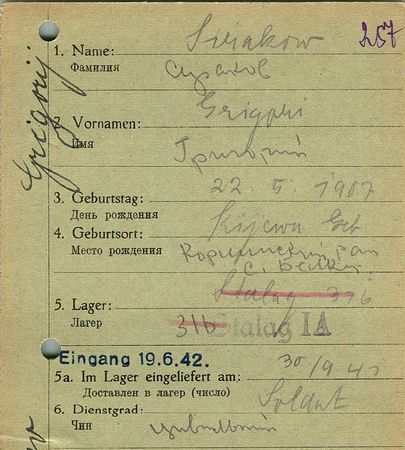 257
1. Name: Surakow
Фамилия Сураков
Grigory
2. Vornamen: Grigori
Имя Григорий
3. Geburtstag: 22. 5. 1907
День рождения
4. Geburtsort: Kijewa Geb
Место рождения
Stalag 316
5. Lager: 316 Stalag IA
Лагер
Eingang 19.6.42. 30/9 41
5a. Im Lager eingeliefert am:
Доставлен в лагер (число)
6. Dienstgrad: Soldat
Чин